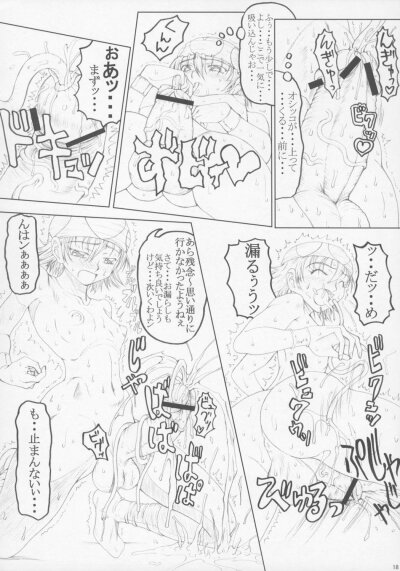 んぎゅっ
んぎゅっ♡
オシッコが…上って
くる…前に…
ビクッ♡
ふぅ…もう少しで…
よし…ここで一気に
吸い込んじゃお…
んんっ
ボビィーン
おあッ…
まずッ…
ドキュッ
ッ…だッ…め
漏るぅぅッ
ビクンッ
ビクンッ
ぷじゃ
びゅるっ
あら残念～思い通りに
行かなかったようねぇ
さて…お漏らしも
気持ち良いでしょう
けど…次いくわよ♡
んはンあぁぁぁ
じゃ
ばばば
ばぱぱ
も…止まんない…
18